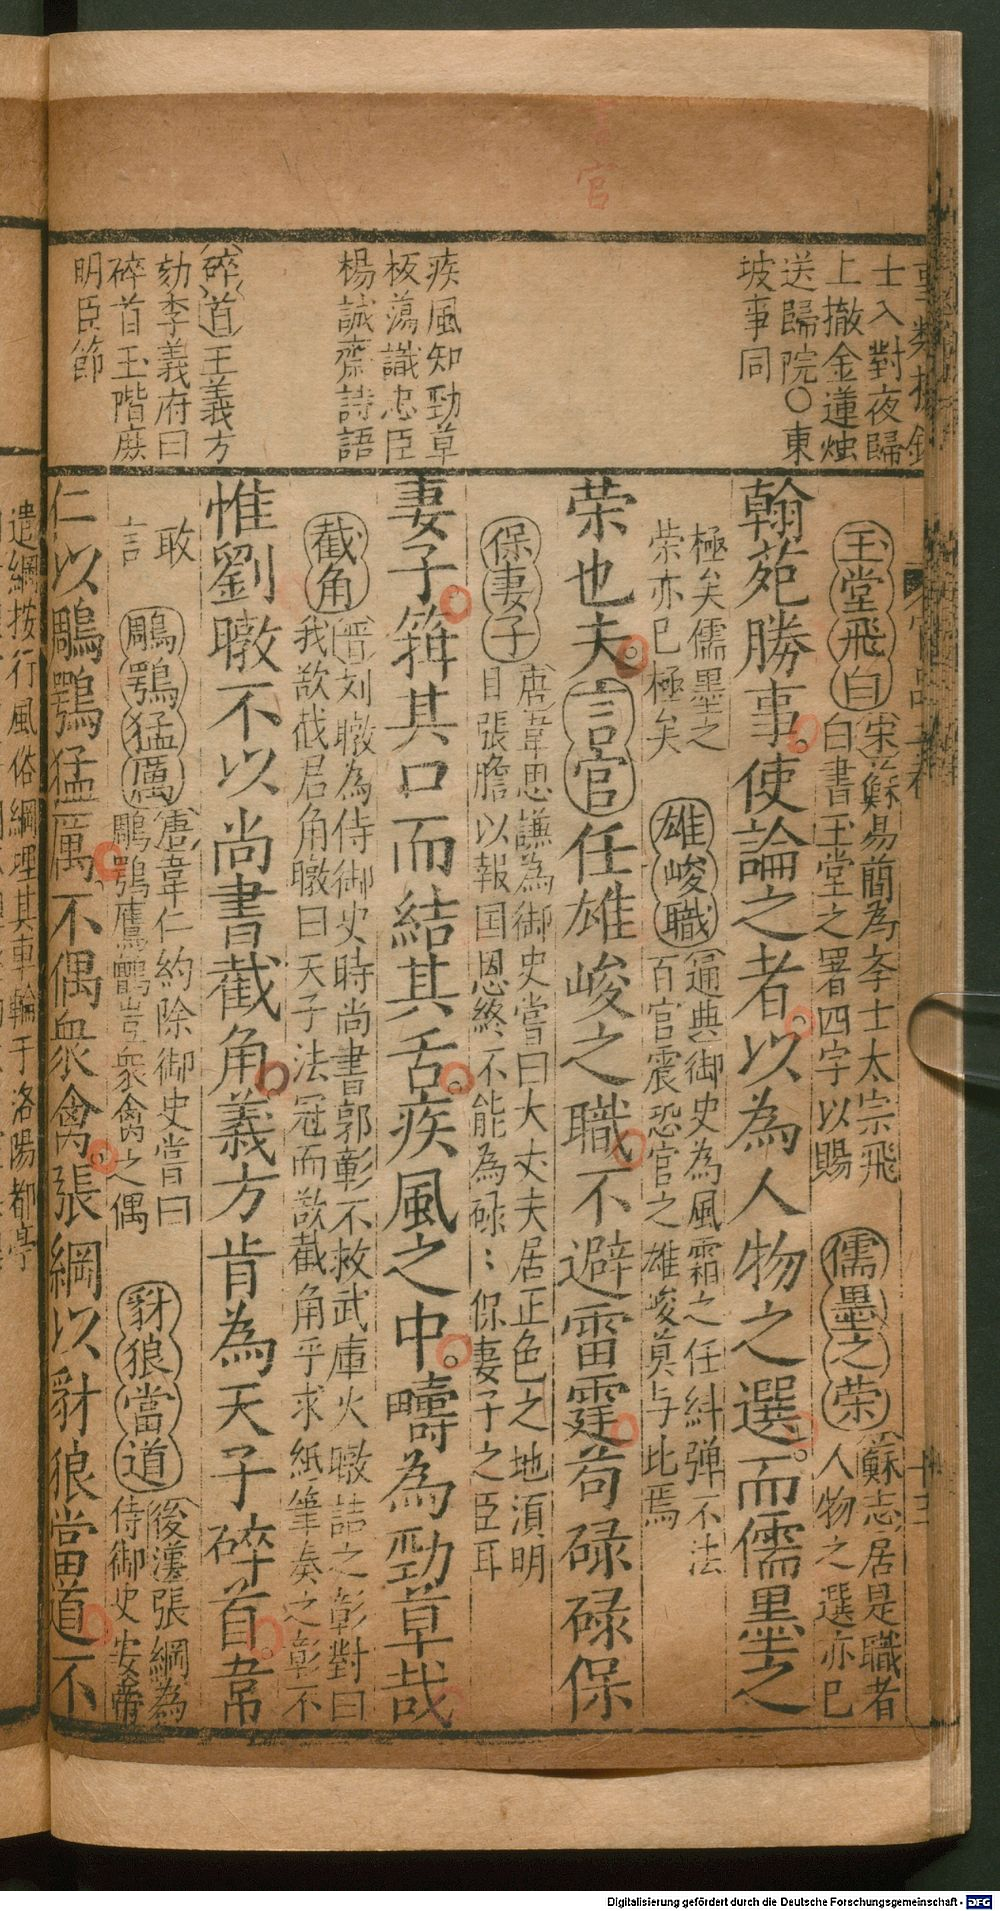 言官
士入對夜歸
上撤金蓮燭
送歸院〇東
坡事同
疾風知勁草
板蕩識忠臣
楊誠齋詩語
碎道王義方
劾李義府曰
碎首玉階庶
明臣節
玉堂飛白
宋蘇易簡為李士太宗飛
白書玉堂之署四字以賜
儒墨之荣
蘇志居是職者
人物之選亦已
翰苑勝事使論之者以為人物之選而儒墨之
極矣儒墨之
荣亦已極矣
雄峻職
通典御史為風霜之任糾弹不法
百官震恐官之雄峻莫与此焉
荣也夫言官任雄峻之職不避雷霆苟碌碌保
保妻子
唐韋思謙為御史嘗曰大丈夫居正色之地湏明
目張膽以報国恩終不能為碌〻保妻子之臣耳
妻子箝其口而結其舌疾風之中疇為勁草哉
截角
晋刘暾為侍御史時尚書郭彰不救武庫火暾詰之彰對曰
我欲截君角暾曰天子法冠而敢截角乎求紙筆奏之彰不
惟劉暾不以尚書截角義方肯為天子碎首韋
敢
言
鵰鶚猛厲
唐韋仁約除御史嘗曰
鵰鶚鷹鸇豈衆禽之偶
豺狼當道
後漢張綱為
侍御史安帝
仁以鵰鶚猛厲不偶衆禽張綱以豺狼當道不
遣綱按行風俗綱埋其車輪于洛陽都亭
Digitalisierung gefördert durch die Deutsche Forschungsgemeinschaft - DFG